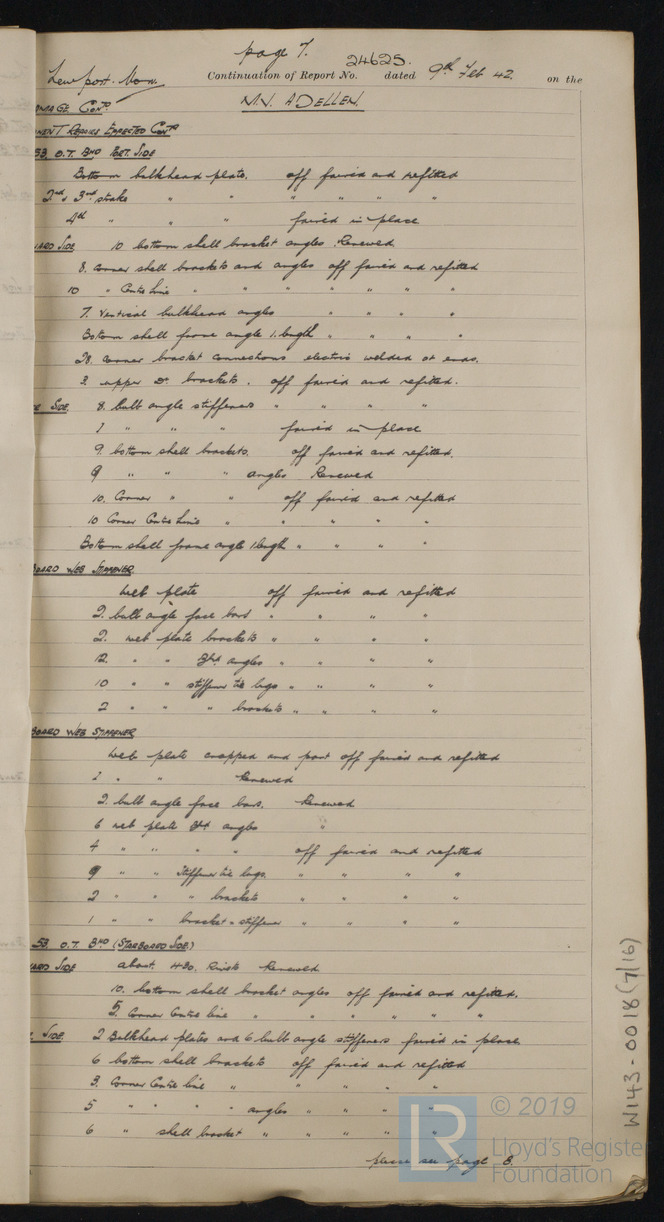 page 7.
Newport. Mon.
Continuation of Report No. 24625. dated 9th Feb 42. on the
M.V. ADELLEN.
MAGE CONTD
NENT REPAIRS EFFECTED CONTD
53. O.T. BHD PORT SIDE
Bottom bulkhead plate. off faired and refitted
2nd & 3rd strake " " " " "
4th " " " faired in place
ARD SIDE 10 bottom shell bracket angles. Renewed
8. corner shell brackets and angles off faired and refitted
10 " Centre Line " " " " " "
7. vertical bulkhead angles " " " "
Bottom shell frame angle 1. length " " " "
28. corner bracket connections electric welded at ends.
3. upper Dk brackets. off faired and refitted.
SIDE. 8. bulb angle stiffeners " " " "
1 " " " faired in place
9. bottom shell brackets. off faired and refitted.
9 " " " angles Renewed
10. Corner " " off faired and refitted
10 Corner Centre Line " " " " "
Bottom shell frame angle 1 length " " " "
BOARD WEB STIFFENER
Web plate off faired and refitted
2. bulb angle face bars " " " "
2. web plate brackets " " " "
12. " " angles " " " "
10 " " stiffener tie lugs " " " "
2 " " " brackets " " " "
BOARD WEB STIFFENER
Web plate cropped and part off faired and refitted
1 " " Renewed
2. bulb angle face bars. Renewed
6 web plate angles "
4 " " " " off faired and refitted
9 " " Stiffener tie lugs. " " " "
2 " " " brackets " " " "
1 " " bracket " stiffener " " " "
53. O.T. BHD (STARBOARD SIDE.)
ARD SIDE about 480. Rivets Renewed
10. bottom shell bracket angles off faired and refitted.
5. Corner Centre line " " " " " "
SIDE. 2 Bulkhead plates and 6 bulb angle stiffeners faired in place
6 bottom shell brackets off faired and refitted
3. Corner Centre line " " " " "
5 " " " " angles " " " "
6 " shell bracket " " " " "
please see page 8.
W143-0018(7/16)
LR
© 2019
Lloyd's Register
Foundation